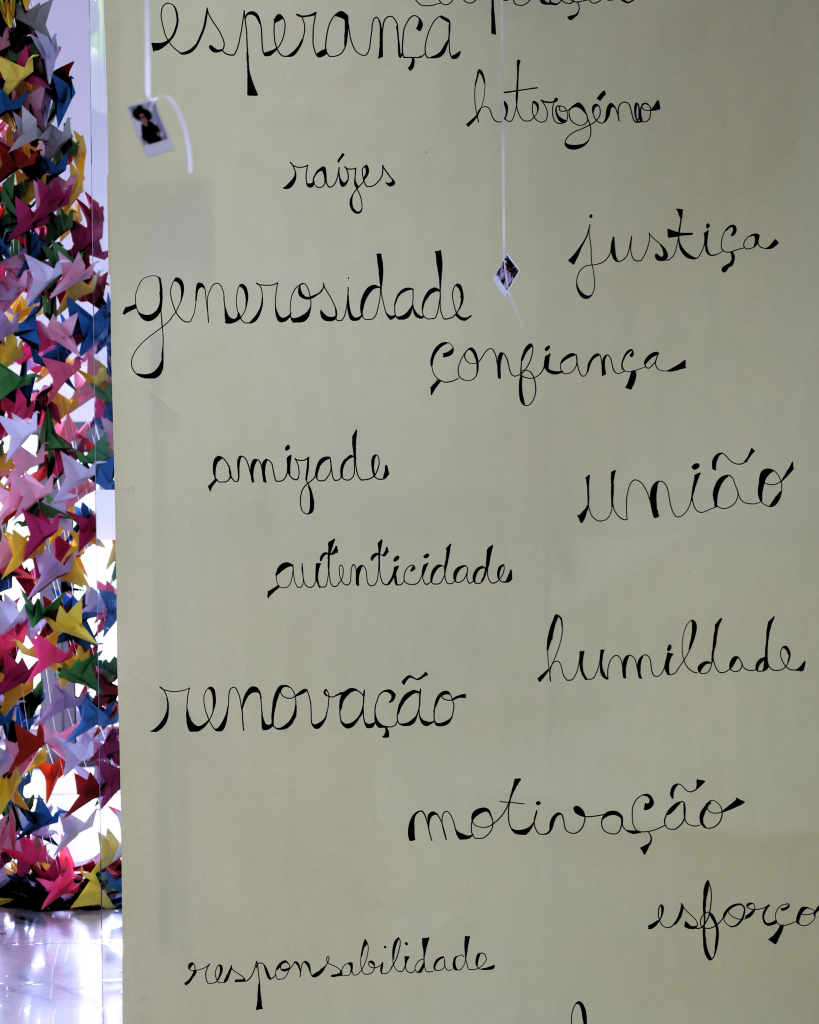 esperança
heterogéneo
raízes
justiça
generosidade
confiança
amizade
união
autenticidade
humildade
renovação
motivação
esforço
responsabilidade